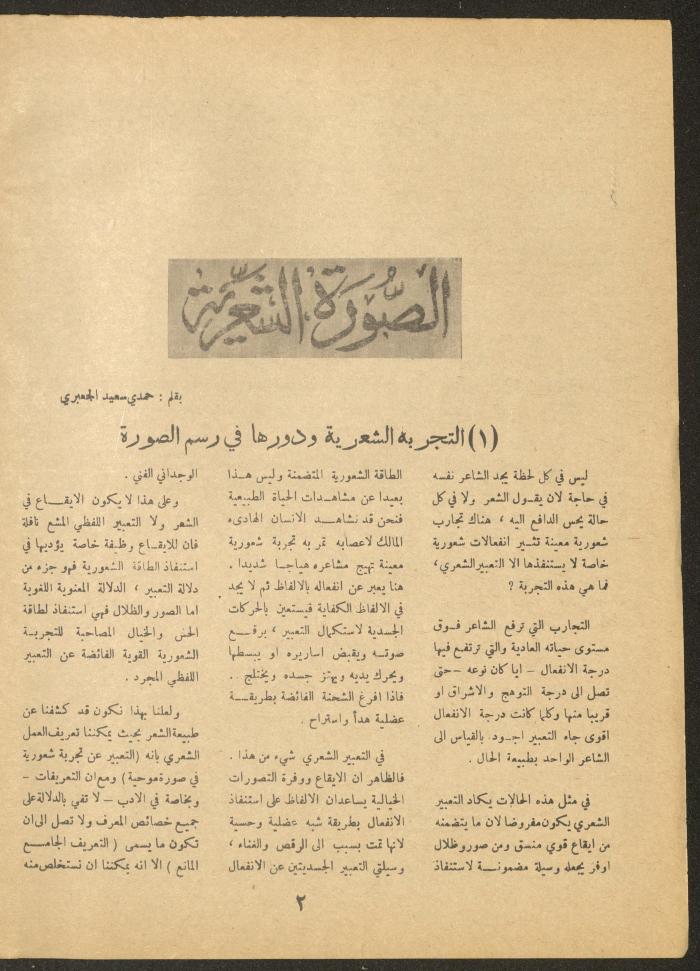 الصورة الشعرية
بقلم : حمدي سعيد الجعبري
(١) التجربه الشعرية ودورها في رسم الصورة
ليس في كل لحظة يجد الشاعر نفسه
في حاجة لان يقـول الشعر ولا في كل
حالة يحس الدافع اليه ، هناك تجارب
شعورية معينة تثـير انفعالات شعورية
خاصة لا يستنفذها الا التعبير الشعري،
فما هي هذه التجربة ؟
التجارب التي ترفع الشاعر فـوق
مستوى حياته العادية والتي ترتفع فيها
درجة الانفعال – ايا كان نوعه – حتى
تصل الى درجة التوهج والاشراق او
قريبا منها وكلما كانت درجة الانفعال
اقوى جاء التعبير اجـود بالقياس الى
الشاعر الواحد بطبيعة الحال .
في مثل هذه الحالات يكاد التعبير
الشعري يكون مفروضا لان ما يتضمنه
من ايقاع قوي منسق ومن صور وظلال
اوفر يجعله وسيلة مضمونـة لاستنفاذ
الطاقة الشعورية المتضمنة وليس هـذا
بعيدا عن مشاهـدات الحياة الطبيعية
فنحن قد نشاهـد الانسان الهادىء
المالك لاعصابه تمر به تجربة شعورية
معينة تهيج مشاعره هياجـا شديدا .
هنا يعبر عن انفعاله بالالفاظ ثم لا يجد
في الالفاظ الكفاية فيستعين بالحركات
الجسدية لاستكمال التعبير ، يرفـع
صوتـه ويقبض اساريره او يبسطها
ويحرك يديه ويهتز جسده ويختلج ..
فاذا افرغ الشحنة الفائضة بطريقـة
عضلية هدأ واستراح .
في التعبير الشعري شيء من هذا .
فالظاهر ان الايقاع ووفرة التصورات
الخيالية يساعدان الالفاظ على استنفاذ
الانفعال بطريقة شبه عضلية وحسية
لانها تمت بسبب الى الرقص والغناء ،
وسيلتي التعبير الجسديتين عن الانفعال
الوجداني الفني .
وعلى هذا لا يكون الايقـاع في
الشعر ولا التعبير اللفظي المشع نافلة
فان للايقـاع وظيفة خاصة يؤديها في
استنفاذ الطاقة الشعورية فهو جزء من
دلالة التعبير ، الدلالة المعنوية اللغوية
اما الصور والظلال فهي استنفاذ لطاقة
الحس والخيال المصاحبة للتجربـة
الشعورية القوية الفائضة عن التعبير
اللفظي المجرد .
ولعلنا بهذا نكون قد كشفنا عن
طبيعة الشعر بحيث يمكننا تعريف العمل
الشعري بانه (التعبير عن تجربة شعورية
في صورة موحية) ومع ان التعريفات –
وبخاصة في الادب – لا تفي بالدلالة على
جميع خصائص المعرف ولا تصل الى ان
تكون ما يسمى ( التعريف الجامـع
المانع ) الا انه يمكننا ان نستخلص منه
٢